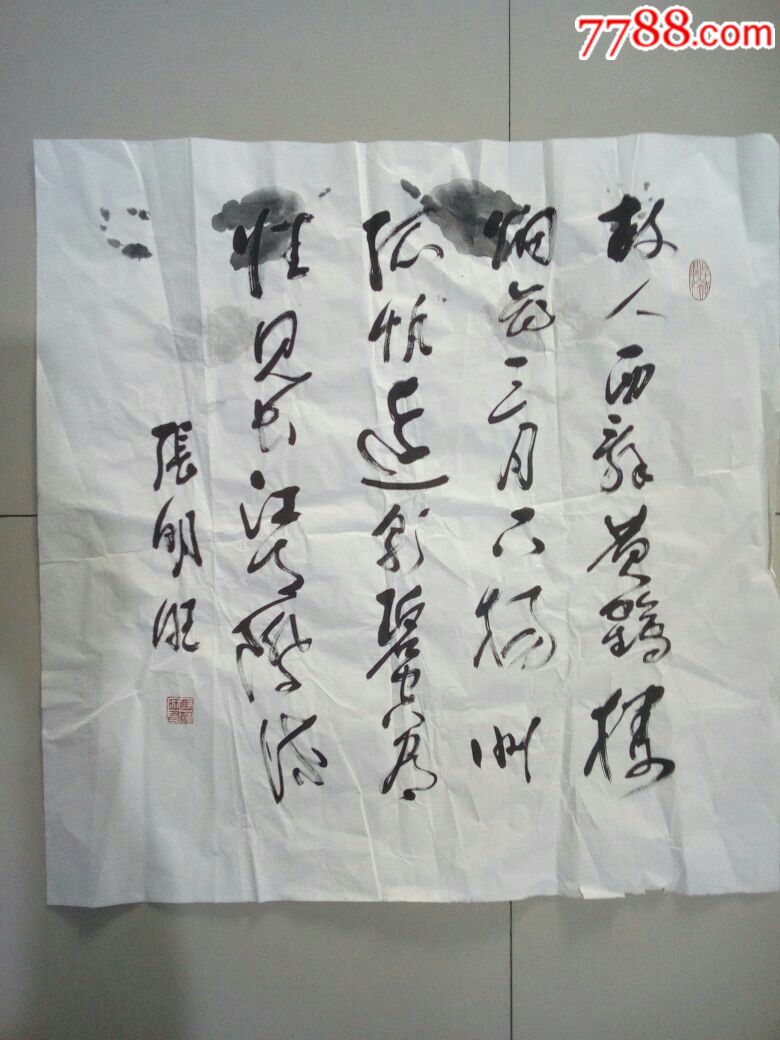 7788.com
故人西辞黄鹤楼
烟花三月下扬州
孤帆远影碧空尽
惟见长江天际流
張明旺